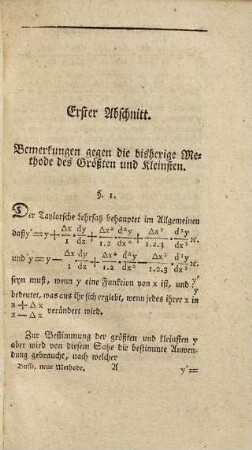 Erster Abschnitt.
Bemerkungen gegen die bisherige Me-
thode des Größten und Kleinsten.
§. 1.
Der Taylorsche Lehrsatz behauptet im Allgemeinen
daß y′ = y + Δx/1 · dy/dx + Δx²/1.2 · d²y/dx² + Δx³/1.2.3 · d³y/dx³ ꝛc.
und ′y = y − Δx/1 · dy/dx + Δx²/1.2 · d²y/dx² − Δx³/1.2.3 · d³y/dx³ ꝛc.
seyn muß, wenn y eine Funktion von x ist, und
bedeutet, was aus ihr sich ergiebt, wenn jedes ihrer x in
x + Δx
x − Δx verändert wird.
Zur Bestimmung der größten und kleinsten y
aber wird von diesem Satze die bestimmte Anwen-
dung gebraucht, nach welcher
Busse, neue Methode. A y′=